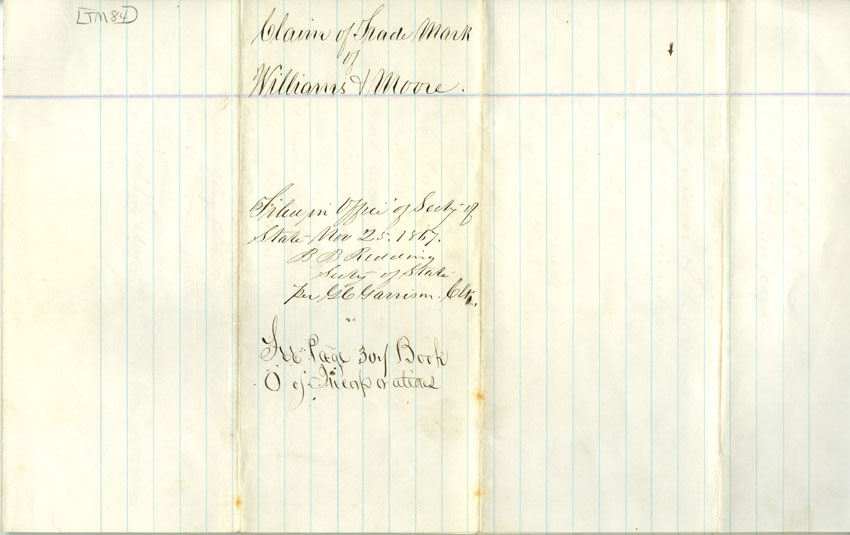 [TM84]
Claim of Trade Mark
of
Williams & Moore.
Filed in Office of Secty of
State Nov 25. 1867.
B B Redding
Secty of State
per Garrison. Clk.
Page Book
O of Incorporations